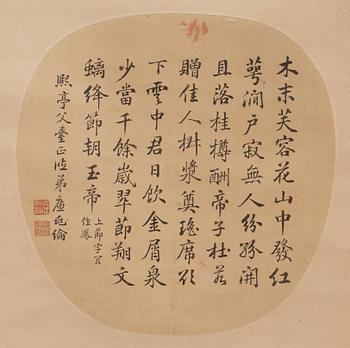 木末芙容花山中發紅
萼澗戶寂無人紛紛開
且落桂樽酬帝子杜若
贈佳人椒漿奠瑤席欲
下雲中君日飲金屑泉
少當千餘歲翠節翔文
螭絳節朝玉帝
上節字宜
作鳳
熙亭父臺正治弟兆綸